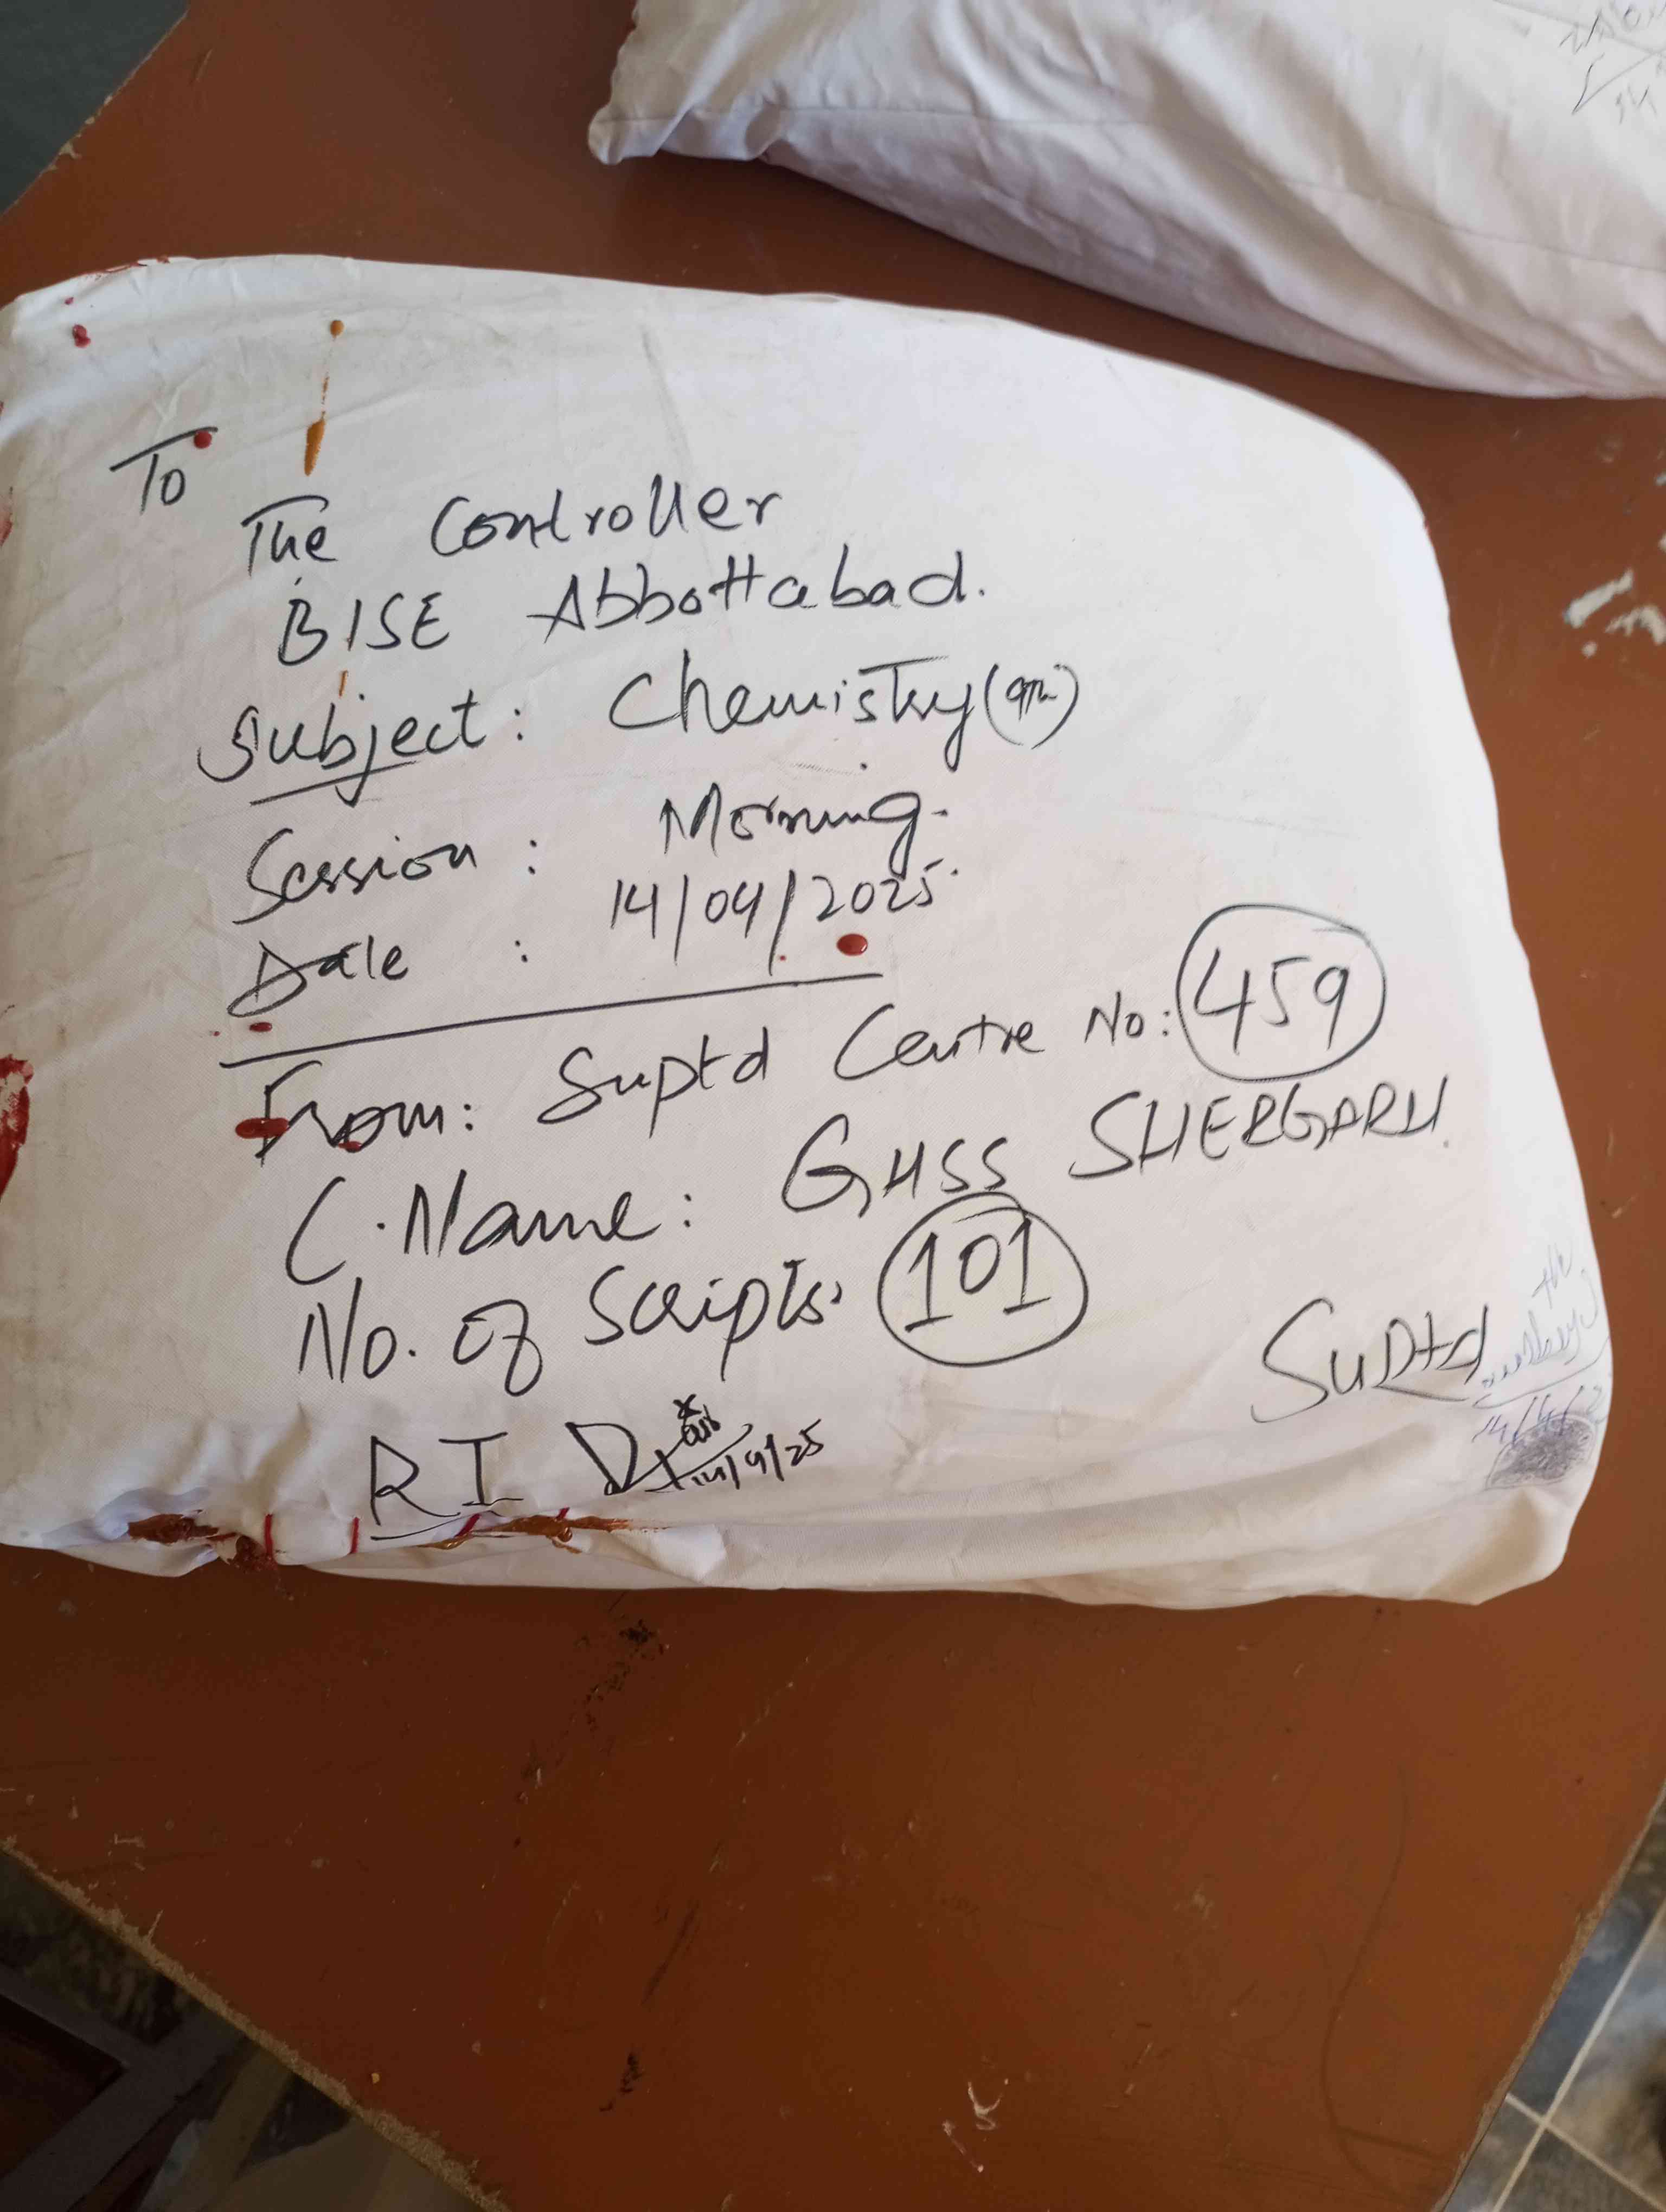 To
The Controller
BISE Abbottabad.
Subject: Chemistry (9th)
Session : Morning.
Date : 14/04/2025.
From: Suptd Centre No: 459
C.Name: GHSS SHERGARH.
No. of Scripts: 101
Suptd
RI
14/4/25